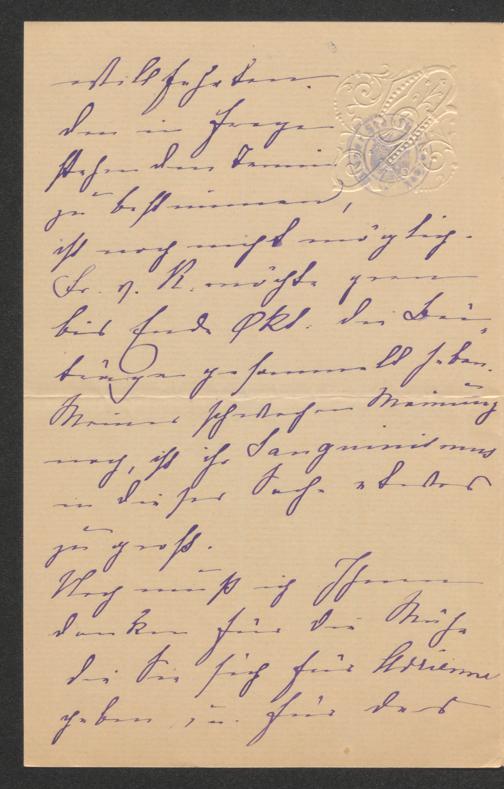 willfahrten.
den in Frage
stehenden Termin
zu bestimmen,
ist noch nicht möglich.
Fr. v. K. möchte gern
bis Ende Okt. die Bei-
träge gesammelt haben.
Meiner schwachen Meinung
nach, ist ihr Sanguinismus
in dieser Sache etwas
zu groß.
Noch muß ich Ihnen
danken für die Mühe
die Sie sich für Adrienne
geben, u. für das